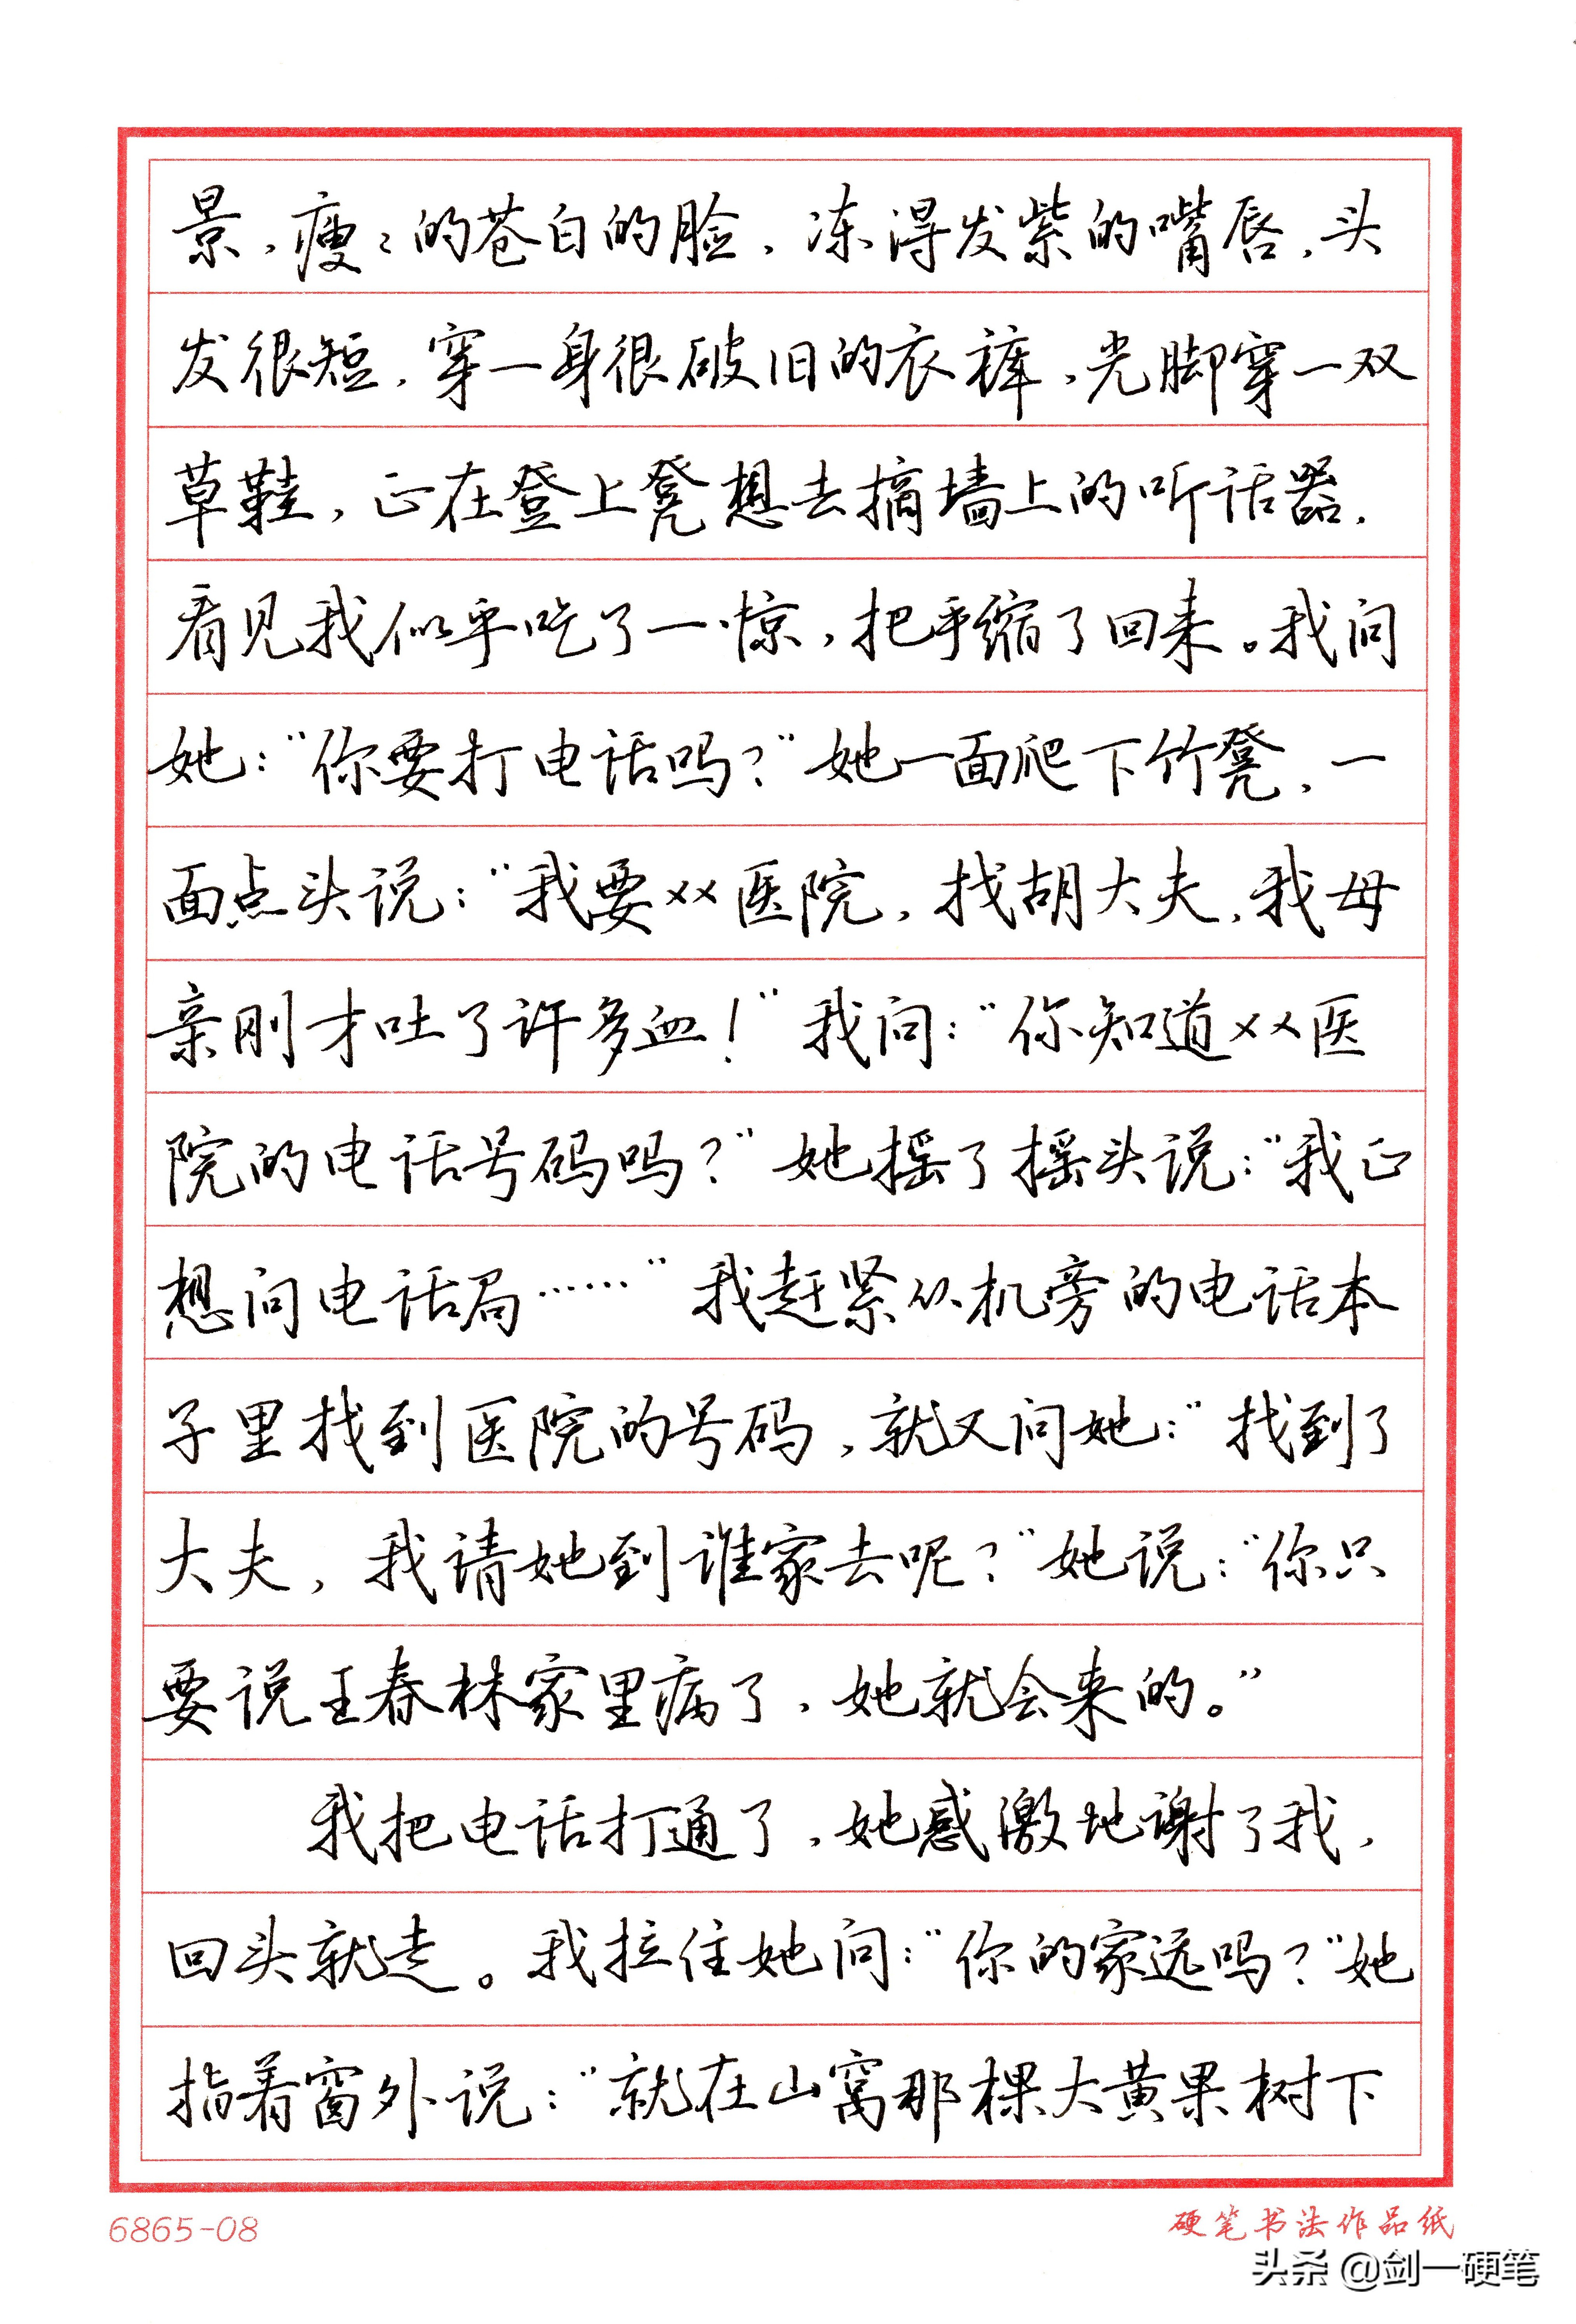 景，瘦々的苍白的脸，冻得发紫的嘴唇，头
发很短，穿一身很破旧的衣裤，光脚穿一双
草鞋，正在登上凳想去摘墙上的听话器，
看见我似乎吃了一惊，把手缩了回来。我问
她：“你要打电话吗？”她一面爬下竹凳，一
面点头说：“我要××医院，找胡大夫，我母
亲刚才吐了许多血！”我问：“你知道××医
院的电话号码吗？”她摇了摇头说：“我正
想问电话局……”我赶紧从机旁的电话本
子里找到医院的号码，就又问她：“找到了
大夫，我请她到谁家去呢？”她说：“你只
要说王春林家里病了，她就会来的。”
我把电话打通了，她感激地谢了我，
回头就走。我拉住她问：“你的家远吗？”她
指着窗外说：“就在山窝那棵大黄果树下
6865-08
硬笔书法作品纸
头条 @剑一硬笔